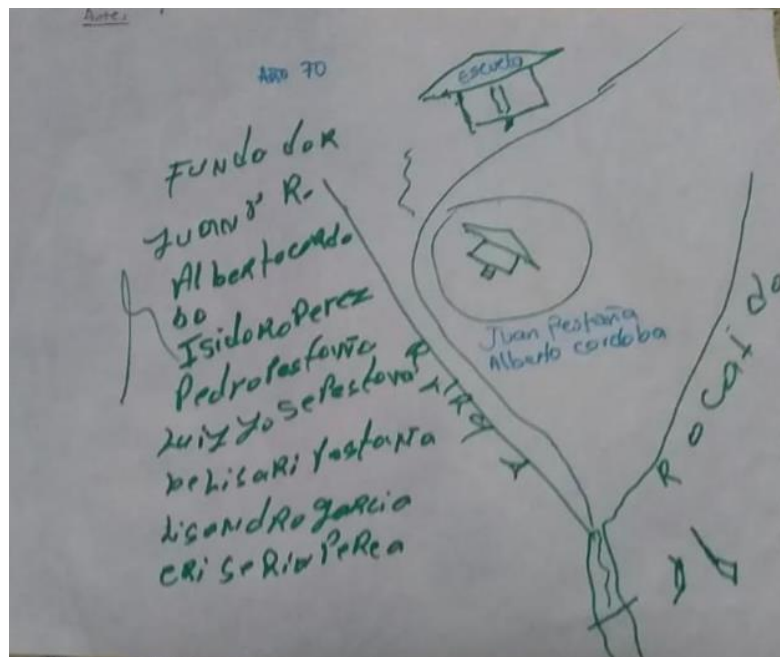 Ante:
Año 70
escuela
FUNdadoR
JuaN P R.
Albertocordo
bo
IsidoRoPerez
PedroPestaña
Luiz JosePestaña
beLisaRi Pestaña
LisaNdRogarcia
cRiseRioPeRea
Juan Pestaña
Alberto cordoba
Rocaido